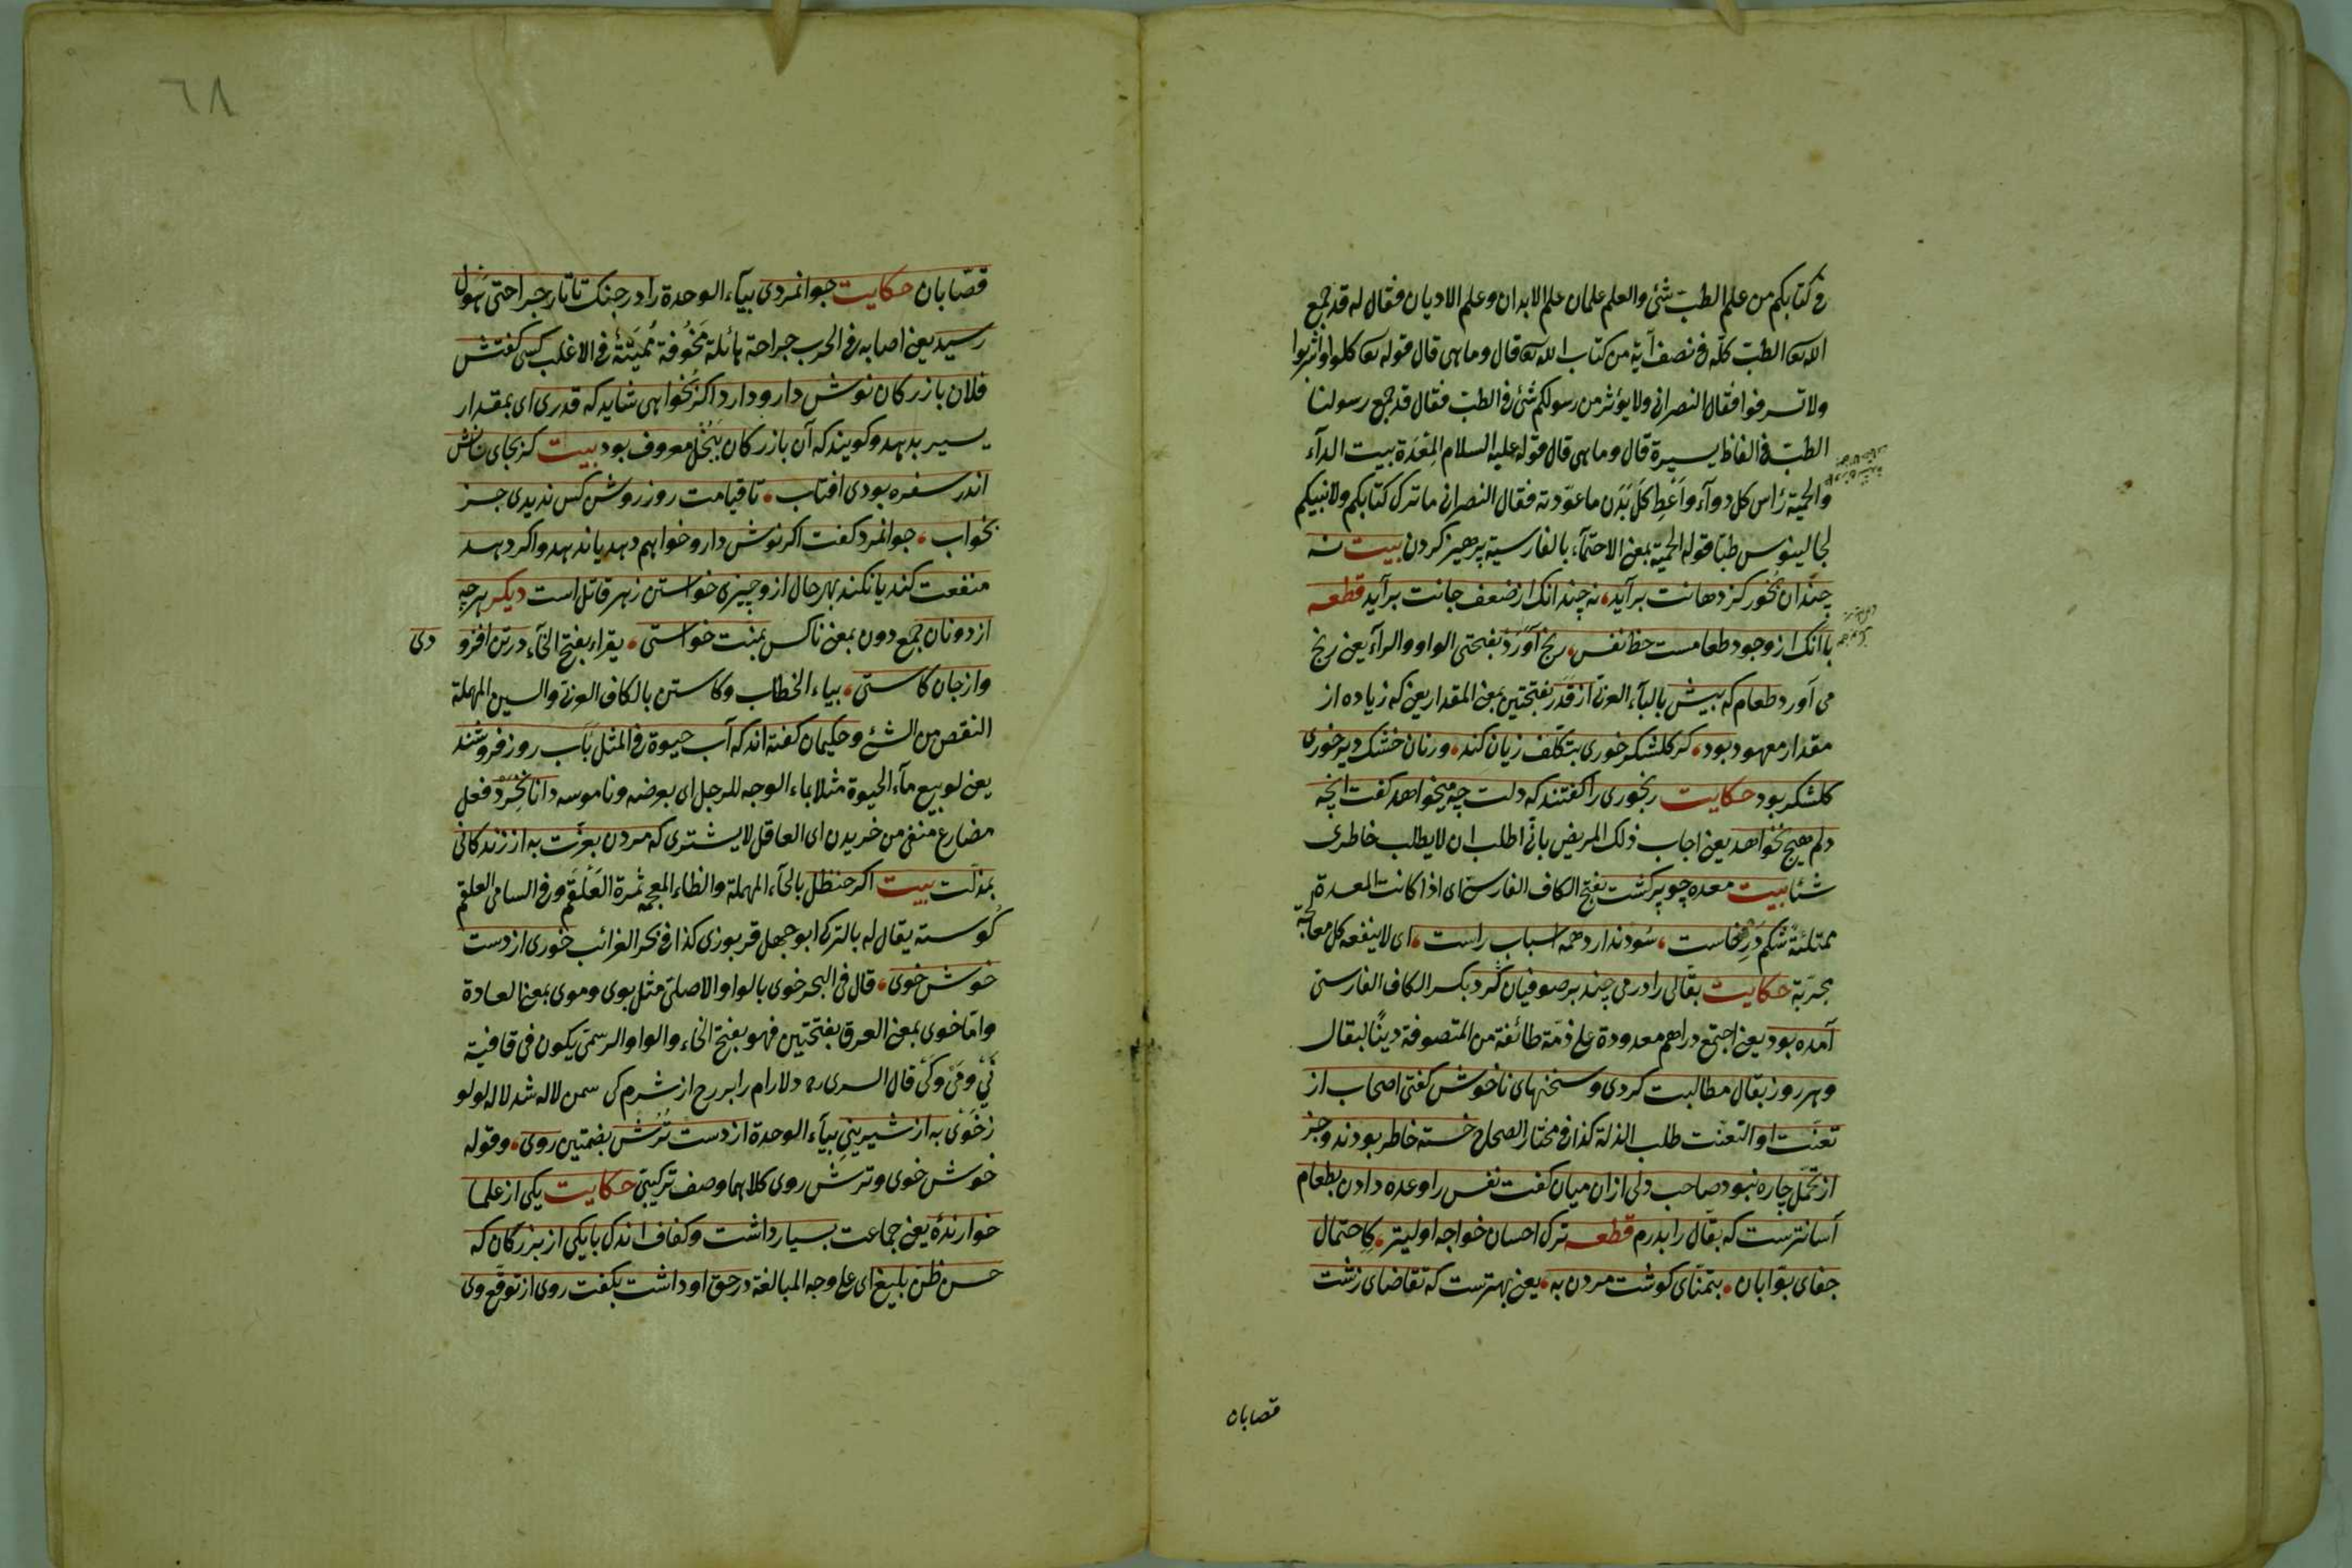 فى كتابكم من علم الطب شئ والعلم علمان علم الابدان وعلم الاديان فقال له قد جمع
الله تعا الطب كلّه فى نصف آية من كتاب الله تعا قال وما هى قال قوله تعا كلوا واشربوا
ولا تسرفوا فقال النصرانى ولا يؤثر من رسولكم شئ فى الطب فقال قد جمع رسولنا
الطب فى الفاظ يسيرة قال وما هى قال قوله عليه السلام المِعْدَة بيت الدآء
والحمية رأس كل دوآء واَعْطِ كلَّ بَدَن ما عوّدته فقال النصرانى ما ترك كتابكم ولا نبيكم
لجالينوس طبّا قوله الحمية بمعنى الاحتمآء بالفارسية پرهيز كردن بيت نه
چندان بخور كز دهانت برآيد نه چندانك از ضعف جانت برآيد قطعه
با آنك از وجود طعامست حظ نفس رنج آوَرَد بفتحتى الواو والرآء يعنى رنج
مى آورد طعام كه بيش بالبآء العربى از قَدَر بفتحتين بمعنى المقدار يعنى كه زياده از
مقدار معهود بود كر كلشكر خورى بتكلّف زيان كند ورنان خشك دير خورى
كلشكر بود حكايت رنجورى را كفتند كه دلت چه ميخواهد كفت انچه
دلم هيچ نخواهد يعنى اجاب ذلك المريض بانّى اطلب ان لا يطلب خاطرى
شئا بيت معده چو پر كشت بفتح الكاف الفارسى اى اذا كانت المعدة
ممتلئة شكم دَرد خاست سُود ندارد همه اسباب راست اى لا ينفعه كل معالجة
مجرّبة حكايت بقّالى را درمى چند بر صوفيان كرد بكسر الكاف الفارسى
آمده بود يعنى اجتمع دراهم معدودة على ذمّة طائفة من المتصوفة دينًا لبقال
وهر روز بقال مطالبت كردى وسخنهاى ناخوش كفتى اصحاب از
تعنّت او التعنّت طلب الذلة كذا فى مختار الصحاح خسته خاطر بودند وجز
از تحمّل چاره نبود صاحب دلى از ان ميان كفت نفس را وعده دادن بطعام
آسانترست كه بقّال را بدرم قطعه ترك احسان خواجه اوليتر كاحتمال
جفاى بوّابان بتمنّاى كوشت مردن به يعنى بهترست كه تقاضاى زشت
قصابان
٦٨
قصّابان حكايت جوانمردى بيآء الوحدة را در جنك تاتار جراحتى هول
رسيد يعنى اصابه فى الحرب جراحة هائلة مَخُوفة مُميتة فى الاغلب كسى كفتش
فلان بازركان نوش دارو دارد اكر بخواهى شايد كه قدرى اى بمقدار
يسير بدهد وكويند كه آن بازركان ببُخل معروف بود بيت كر بجاى نانش
اندر سفره بودى افتاب تا قيامت روز روشن كس نديدى جز
بخواب جوانمرد كفت اكر نوش دارو خواهم دهد يا ندهد واكر دهد
منفعت كند يا نكند بهر حال از و چيزى خواستن زهر قاتل است ديكر هر چه
از دونان جمع دون بمعنى ناكس بمنّت خواستى يقراء بفتح الخآء در تن افزو دى
واز جان كاستى بياء الخطاب وكاستن بالكاف العربى والسين المهملة
النقص من الشئ وحكيمان كفته اند كه آب حيوة فى المثل بآب روز فروشند
يعنى لو بيع مآء الحيوة مثلا بماء الوجه للرجل اى بعرضه وناموسه دانا نخِرَد فعل
مضارع منفى من خريدن اى العاقل لا يشترى كه مردن بعزّت به از زندكانى
بمذلّت بيت اكر حنظل بالحآء المهملة والظاء المعجمة ثمرة العَلْقَم وفى السامى العلقم
كُوسته يقال له بالتركى ابو جهل قربوزى كذا فى بحر الغرائب خورى از دست
خوش خوى قال فى البحر خوى بالواو الاصلى مثل بوى وموى بمعنى العادة
وامّا خوى بمعنى العرق بفتحتين فهو بفتح الخاء والواو الرسمى يكون فى قافية
نَىْ ومَىْ وكَىْ قال السرى ره دلارام را بر رخ از شرم كى سمن لاله شد لاله لولو
زخَوَىْ به از شيرينىِ بيآء الوحدة از دست تُرُش بضمتين روى وقوله
خوش خوى وترش روى كلاهما وصف تركيبى حكايت يكى از علما
خوارندهٔ يعنى جماعت بسيار داشت وكفاف اندك با يكى از بزركان كه
حسن ظنّ بليغ اى على وجه المبالغة در حق او داشت بكفت روى از توقّع وى